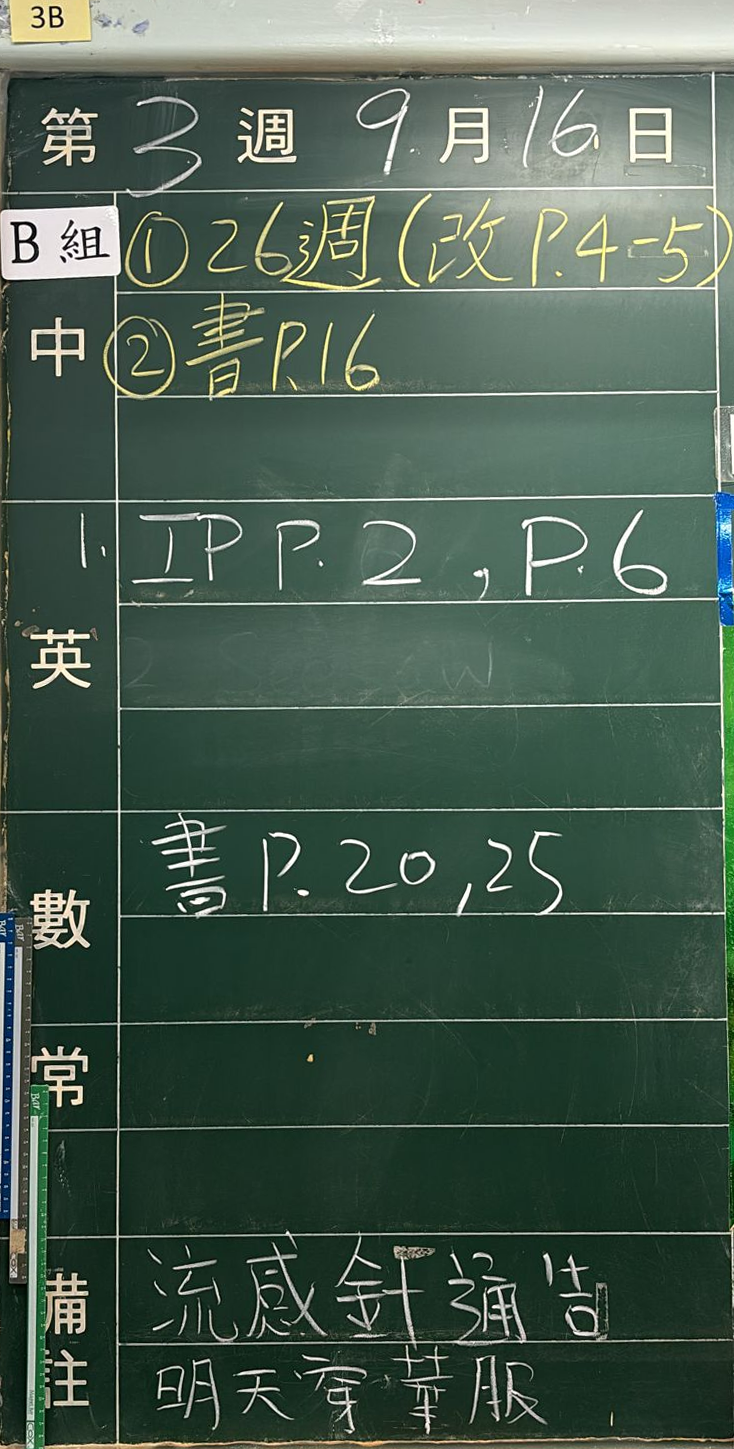 3B
第 3 週 9月16日
B 組 ①26週(改P.4-5)
中 ②書P.16
1. IP P.2 , P.6
英
書 P.20,25
數
常
備註
流感針通告
明天穿華服